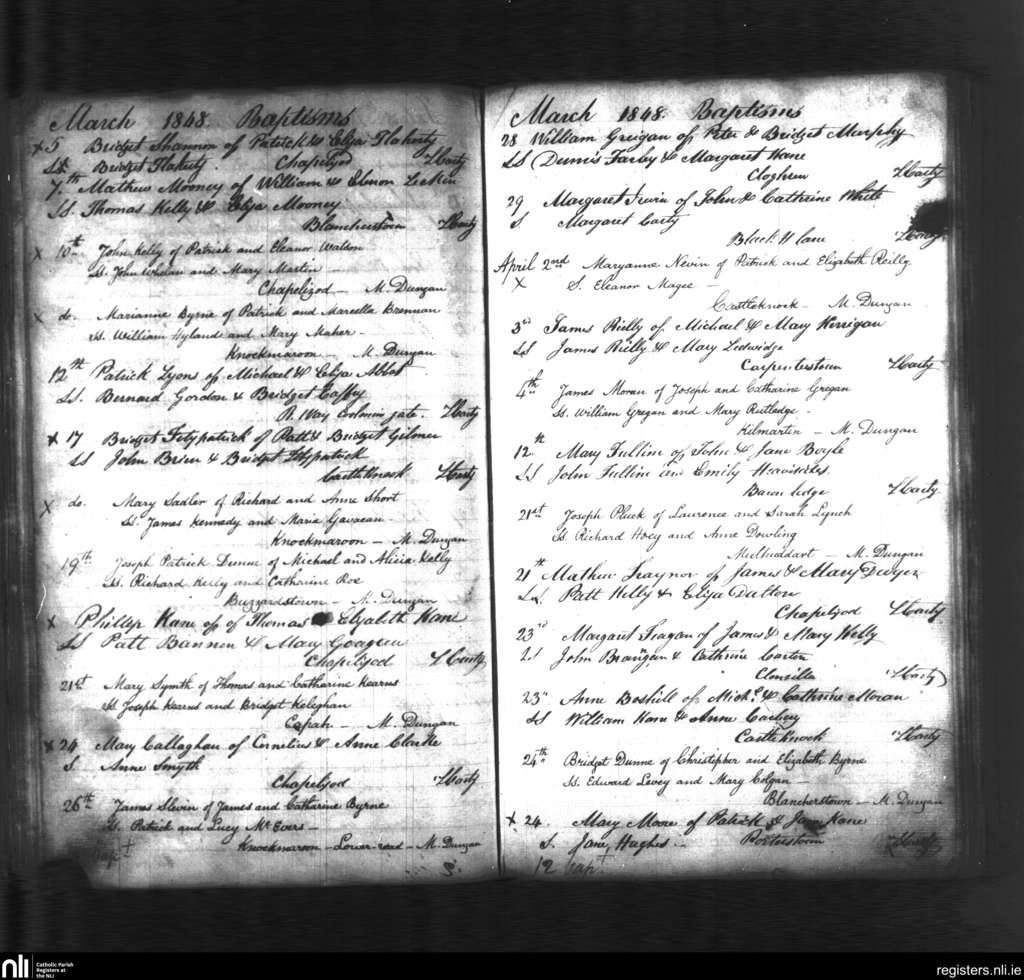 March 1848. Baptisms
x 5 Bridget Shannon of Patrick & Eliza Flaherty
SS Bridget Flaherty. Chapelizod
7th Mathew Mooney of William & Elenor
SS. Thomas Kelly & Eliza Mooney
Blancherstown
x 10th John Kelly of Patrick and Eleanor Walton
Ss. John Whelan and Mary Martin
Chapelizod — M. Dungan
x do. Marianne Byrne of Patrick and Marcella Brennan
Ss. William Hyland and Mary Maher
Knockmaroon — M. Dungan
12th Patrick Lyons of Michael & Eliza Abbot
SS. Bernard Gordon & Bridget
gate.
x 17 Bridget Fitzpatrick of Patt & Bridget Gilmer
SS John Brien & Bridget Fitzpatrick
Castleknock
x do. Mary Sadler of Richard and Anne Short
Ss. James Kennedy and Maria
Knockmaroon — M. Dungan
19th Joseph Patrick Dunne of Michael and Alicia Kelly
Ss. Richard Kelly and Catherine Roe
Buzzardstown — M. Dungan
x Phillip Kane of of Thomas & Elizabeth Kane
SS Patt Bannon & Mary
Chapelizod
21st Mary Symth of Thomas and Catharine Kearns
Ss Joseph Kearns and Bridget Keleghan
M. Dungan
x 24 Mary Callaghan of Cornelius & Anne Clarke
S. Anne Smyth
Chapelizod
26th James Slevin of James and Catharine Byrne
Ss. Patrick and Lucy Mc Evers —
Knockmaroon — Lower-road — M. Dungan
March 1848. Baptisms
28 William Greigan of Peter & Bridget Murphy
SS Dennis Farley & Margaret Kane
Cloghren
29 Margaret Irwin of John & Cathrine White
S. Margaret Carty
Black H lane
April 2nd Maryanne Nevin of Patrick and Elizabeth Reilly
x S. Eleanor Magee —
Castleknock — M. Dungan
3rd James Rielly of Michael & Mary Kerrigan
SS James Rielly & Mary Ledwidge
Carpenterstown
4th James Moran of Joseph and Catharine Gregan
Ss. William Gregan and Mary Rutledge.
Kilmartin — M. Dungan
12th Mary Fullim of John & Jane Boyle
SS John Fullim and Emily
21st Joseph Pluck of Laurence and Sarah Lynch
Ss Richard Hoey and Anne Dowling
Mulhuddart — M. Dungan
21th Mathew Traynor of James & Mary Dwyer
SS. Patt Kelly & Eliza Dutton
Chapelizod
23rd Margaret Feagan of James & Mary Kelly
SS John Brangan & Cathrine Carter
Clonsilla
23rd Anne Boshill of Mich. & Cathrine Moran
SS William Kane & Anne
Castleknock
24th Bridget Dunne of Christopher and Elizabeth Byrne
Ss. Edward Levey and Mary Colgan —
Blancherstown — M. Dungan
x 24. Mary Mone of Patrick & Jane Kane
S. Jane Hughes. Porterstown
12 bapt
nli Catholic Parish
Registers at
the NLI
registers.nli.ie